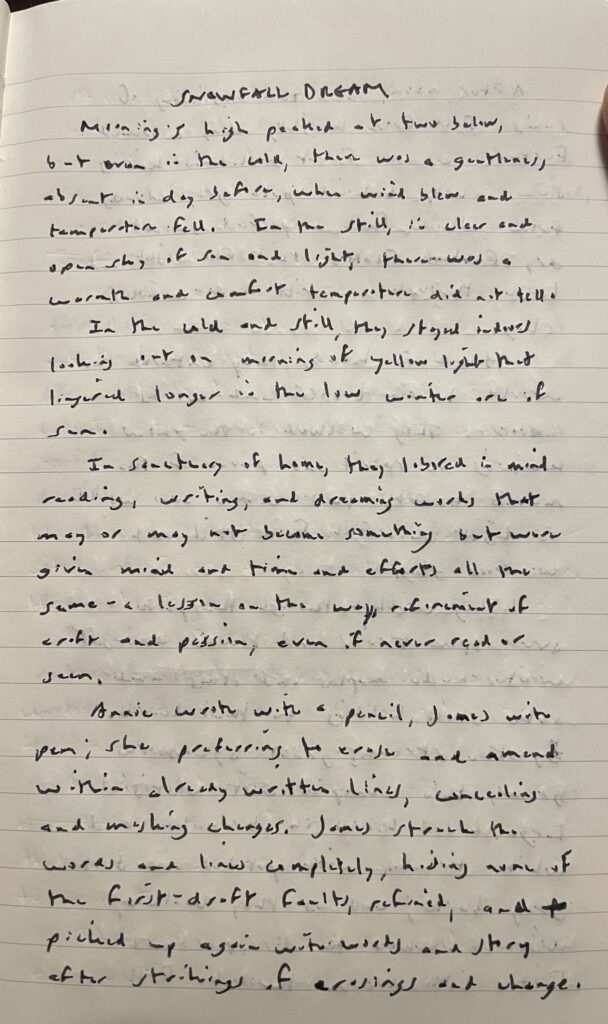 SNOWFALL DREAM
Morning's high peaked at two below,
but even in the cold, there was a gentleness,
absent in day before, when wind blew and
temperature fell. In the still, in clear and
open sky of sun and light, there was a
warmth and comfort temperature did not tell.
In the cold and still, they stayed indoors
looking out on morning of yellow light that
lingered longer in the low winter arc of
sun.
In sanctuary of home, they labored in mind
reading, writing, and dreaming works that
may or may not become something but were
given mind and time and efforts all the
same - a lesson on the way, refinement of
craft and passion, even if never read or
seen.
Annie wrote with a pencil, James with
pen; she preferring to erase and amend
within already written lines, concealing
and masking changes. James struck the
words and lines completely, hiding none of
the first-draft faults, refined, and
picked up again with words and story
after strikings of erasings and change.